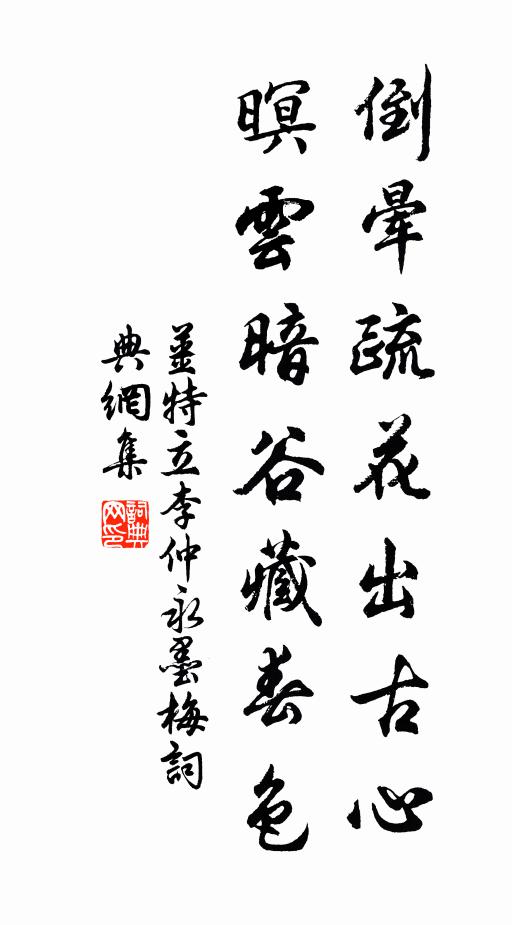 倒暈疏花出古心
暝雲暗谷藏春色
姜特立李仲永墨梅詞
典網集
詞典網印